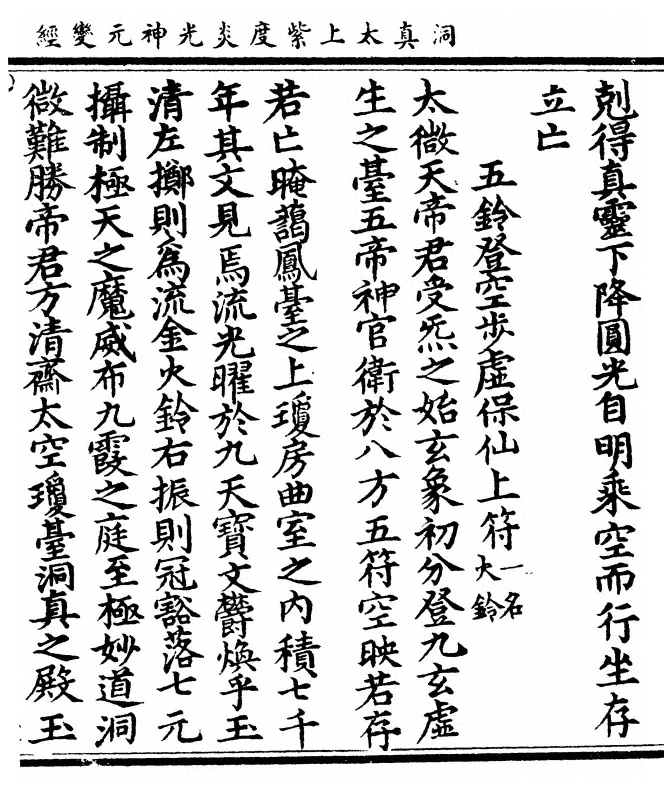 洞真太上紫度炎光神元變經
剋得真靈下降圓光自明乘空而行坐存
立亡
五鈴登空步虛保仙上符一名火鈴
太微天帝君受炁之始玄象初分登九玄虛
生之臺五帝神官衛於八方五符空映若存
若亡晻藹鳳臺之上瓊房曲室之內積七千
年其文見焉流光曜於九天寶文欝煥乎玉
清左擲則為流金火鈴右振則冠豁落七元
攝制極天之魔威布九霞之庭至極妙道洞
微難勝帝君方清齋太空瓊臺洞真之殿玉